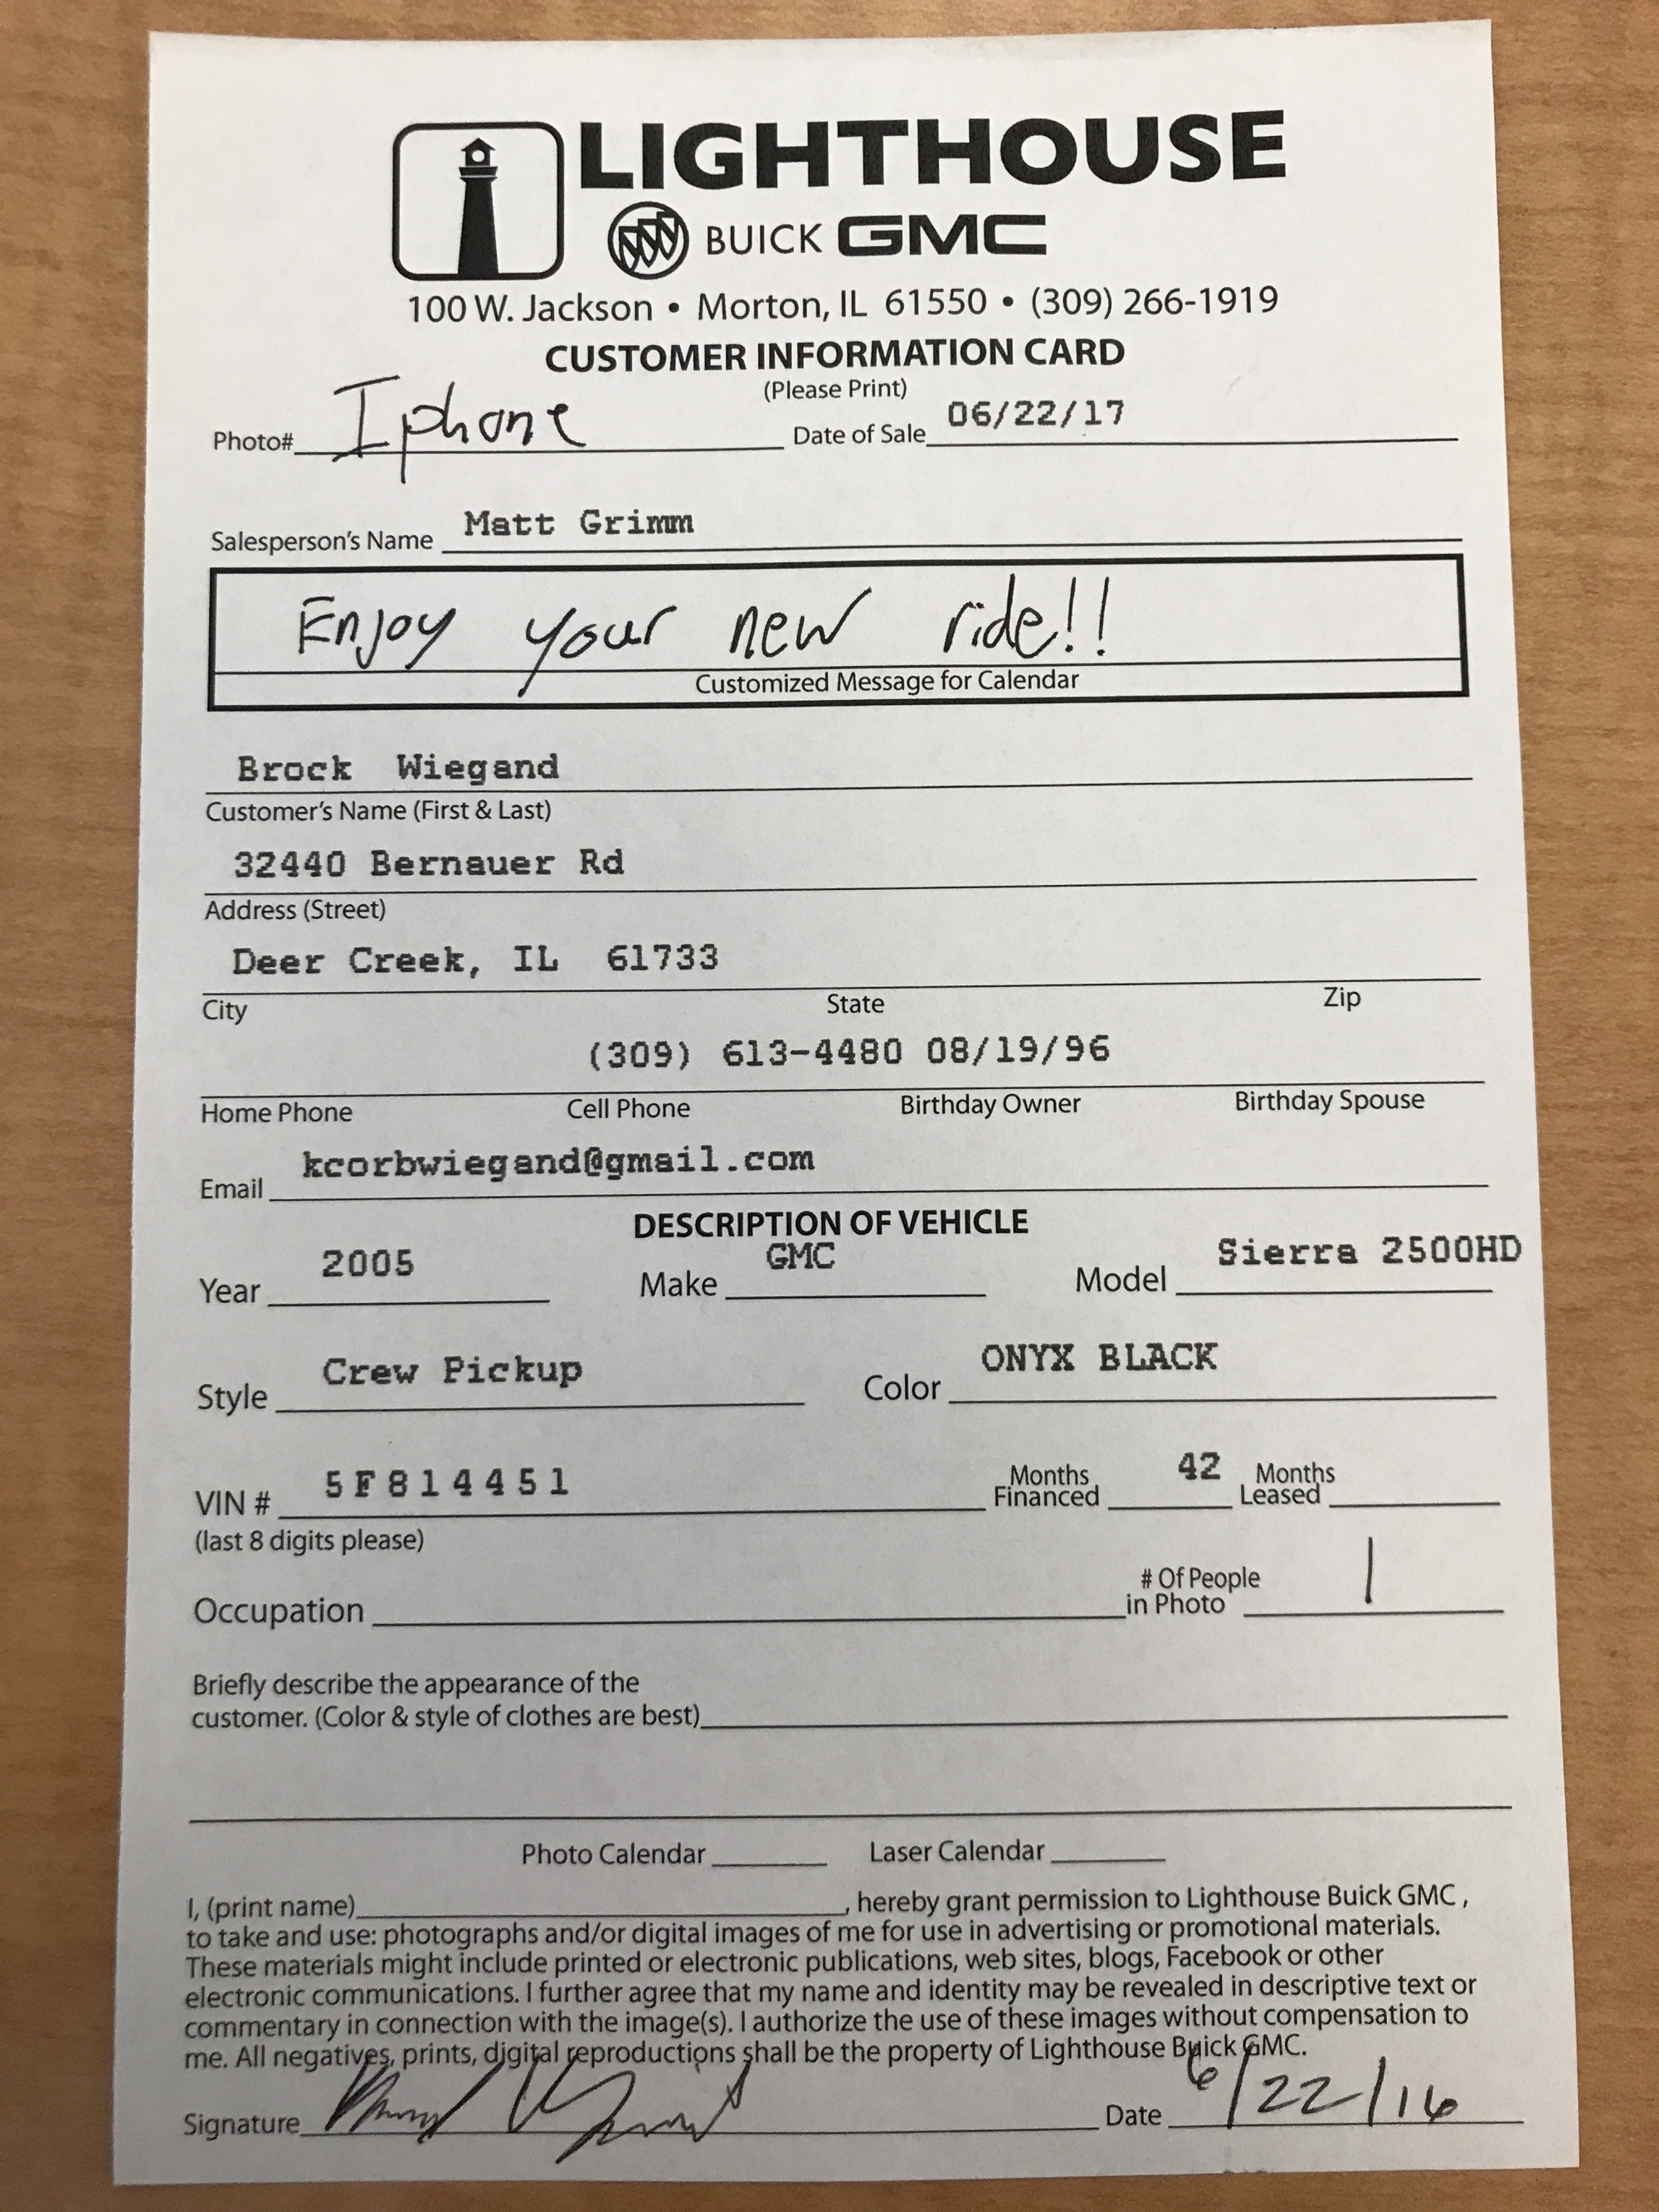 LIGHTHOUSE
BUICK GMC
100 W. Jackson • Morton, IL 61550 • (309) 266-1919
CUSTOMER INFORMATION CARD
(Please Print)
Photo# Iphone Date of Sale 06/22/17
Salesperson's Name Matt Grimm
Enjoy your new ride!!
Customized Message for Calendar
Brock Wiegand
Customer's Name (First & Last)
32440 Bernauer Rd
Address (Street)
Deer Creek, IL 61733
City State Zip
(309) 613-4480 08/19/96
Home Phone Cell Phone Birthday Owner Birthday Spouse
Email kcorbwiegand@gmail.com
DESCRIPTION OF VEHICLE
Year 2005 Make GMC Model Sierra 2500HD
Style Crew Pickup Color ONYX BLACK
VIN # 5F814451 Months Financed 42 Months Leased
(last 8 digits please)
Occupation # Of People in Photo 1
Briefly describe the appearance of the
customer. (Color & style of clothes are best)
Photo Calendar Laser Calendar
I, (print name) , hereby grant permission to Lighthouse Buick GMC ,
to take and use: photographs and/or digital images of me for use in advertising or promotional materials.
These materials might include printed or electronic publications, web sites, blogs, Facebook or other
electronic communications. I further agree that my name and identity may be revealed in descriptive text or
commentary in connection with the image(s). I authorize the use of these images without compensation to
me. All negatives, prints, digital reproductions shall be the property of Lighthouse Buick GMC.
Signature Date 6/22/16